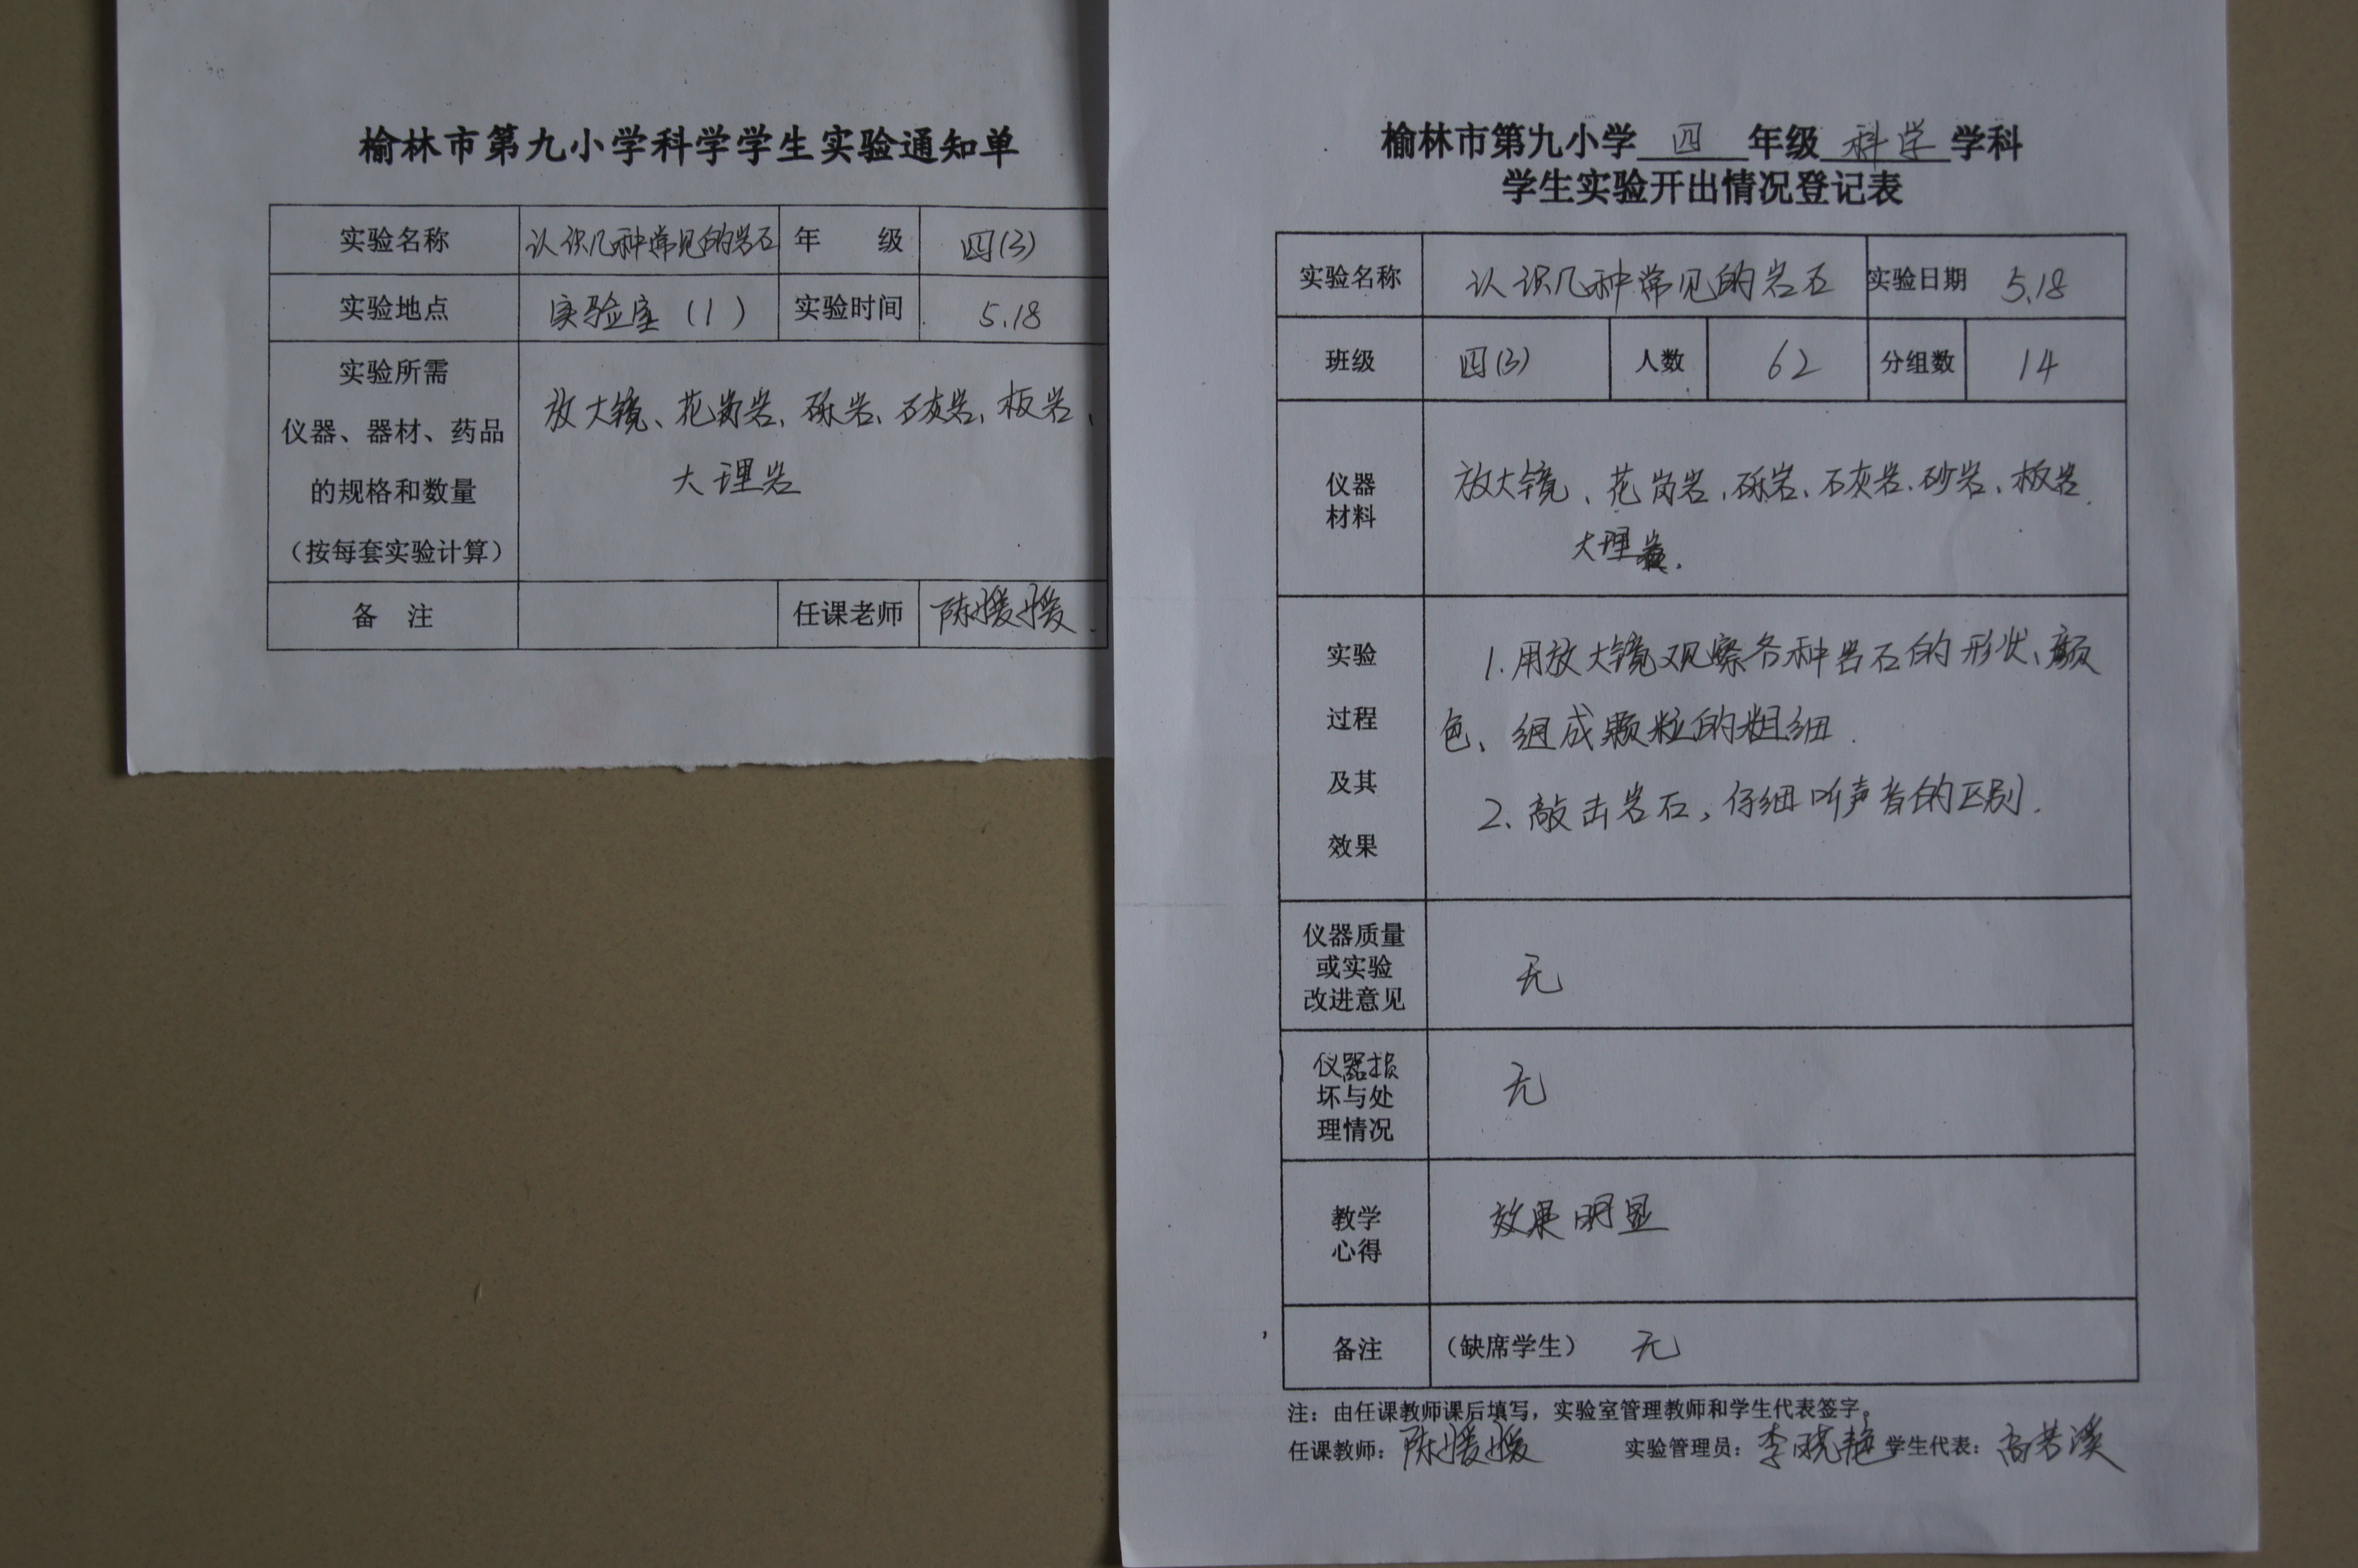 榆林市第九小学科学学生实验通知单
实验名称 认识几种常见的岩石 年 级 四(3)
实验地点 实验室(1) 实验时间 5.18
实验所需
仪器、器材、药品
的规格和数量
(按每套实验计算)
放大镜、花岗岩、砾岩、石灰岩、板岩、
大理岩
备 注 任课老师 陈媛媛
榆林市第九小学 四 年级 科学 学科
学生实验开出情况登记表
实验名称 认识几种常见的岩石 实验日期 5.18
班级 四(3) 人数 62 分组数 14
仪器
材料
放大镜、花岗岩、砾岩、石灰岩、砂岩、板岩、
大理岩.
实验
过程
及其
效果
1.用放大镜观察各种岩石的形状、颜
色、组成颗粒的粗细.
2、敲击岩石,仔细听声音的区别.
仪器质量
或实验
改进意见
无
仪器损
坏与处
理情况
无
教学
心得
效果明显
备注 (缺席学生) 无
注:由任课教师课后填写,实验室管理教师和学生代表签字。
任课教师:陈媛媛 实验管理员:李晓艳 学生代表:高若溪